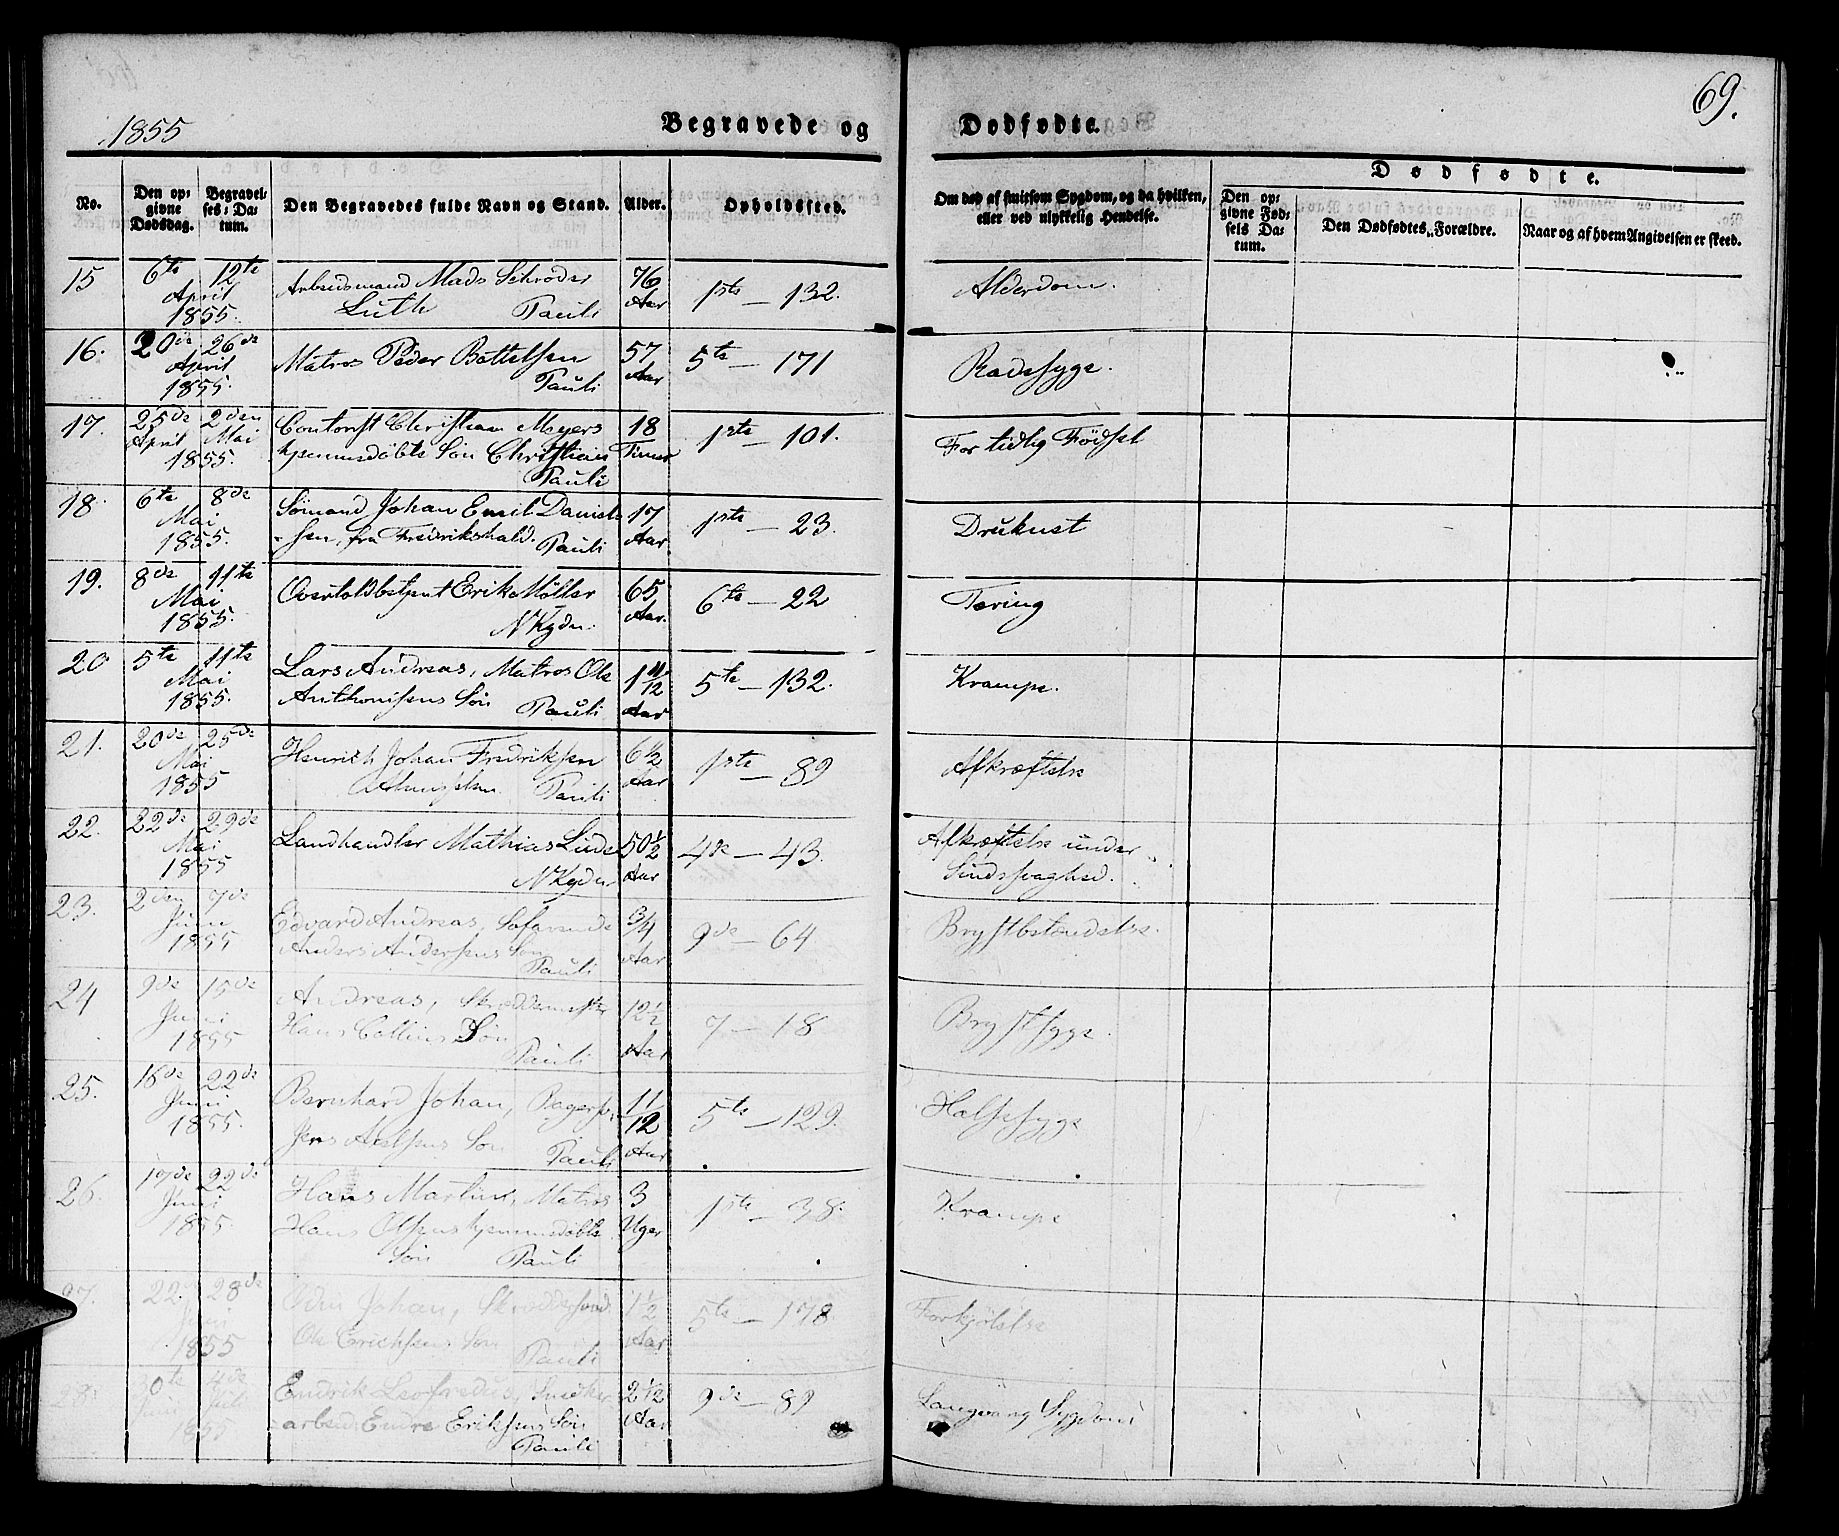 1855
Begravede og Dødfødte.
69.
No.
Den opgivne Dødsdag.
Begravelses-Datum.
Den Begravedes fulde Navn og Stand.
Alder.
Opholdssted.
Om død af smitsom Sygdom, og da hvilken, eller ved ulykkelig Hendelse.
Dødfødte.
Den opgivne Fødsels Datum.
Den Dødfødtes Forældre.
Naar og af hvem Angivelsen er skeed.
15 6te 12te Arbeidsmand Mads Schrøder 76 1ste — 132. Alderdom.
April Luth Pauli Aar
1855.
16. 20de 26de Matros Peder Bottelsen 57 5te — 171 Radesyge.
April Pauli Aar
1855.
17. 25de 2den Contorist Christian Meyers 18 1ste — 101. For tidlig Fødsel
April Mai hjemmedøbte Søn Christian Timer
1855. Pauli
18. 6te 8de Sømand Johan Emil Daniel- 17 1ste — 23. Druknet
Mai sen, fra Fredrikshald. Pauli Aar.
1855.
19. 8de 11te Overtoldbetjent Erik Møller 65 6te — 22 Tæring
Mai NKyden. Aar.
1855.
20 5te 11te Lars Andreas, Matros Ole 1 11/12 5te — 132. Krampe.
Mai Anthonisens Søn Pauli Aar
1855.
21. 20de 25de Henrich Johan Fredriksen 6 1/2 1ste — 89 Afkræftelse
Mai Pauli Aar
1855
22. 22de 29de Landhandler Mathias Lude 50 1/2 4de — 43. Afkræftelse under
Mai NKyden Aar Sindssvaghed.
1855
23. 2den 7de Edvard Andreas, Søfarende 3/4 9de — 64 Brystbetændelse.
Juni Anders Andersens Søn Aar
1855 Pauli
24 9de 15de Andreas, Skræddermester 12 1/2 7 — 18 Brystsyge.
Juni Hans Collins Søn Aar
1855 Pauli
25. 16de 22de Bernhard Johan, 11/12 5te — 129. Halssyge
Juni Jens Axelsens Søn Pauli Aar
1855.
26. 19de 22de Hans Martin, Matros 3 1ste — 38. Krampe
Juni Hans Olsens hjemmedøbte Uger
1855. Søn Pauli
27. 22 28de Odin Johan, Skræddersvend 1 1/2 5te — 178. Forkjølelse
Juni Ole Erichsens Søn Aar
1855 Pauli
28. 4de Endrik Leofredus, Snedker 2 1/2 9de — 89 Langvarig Sygdom
Juni Juli arbeid. Endre Eriksens Søn Aar
1855 Pauli